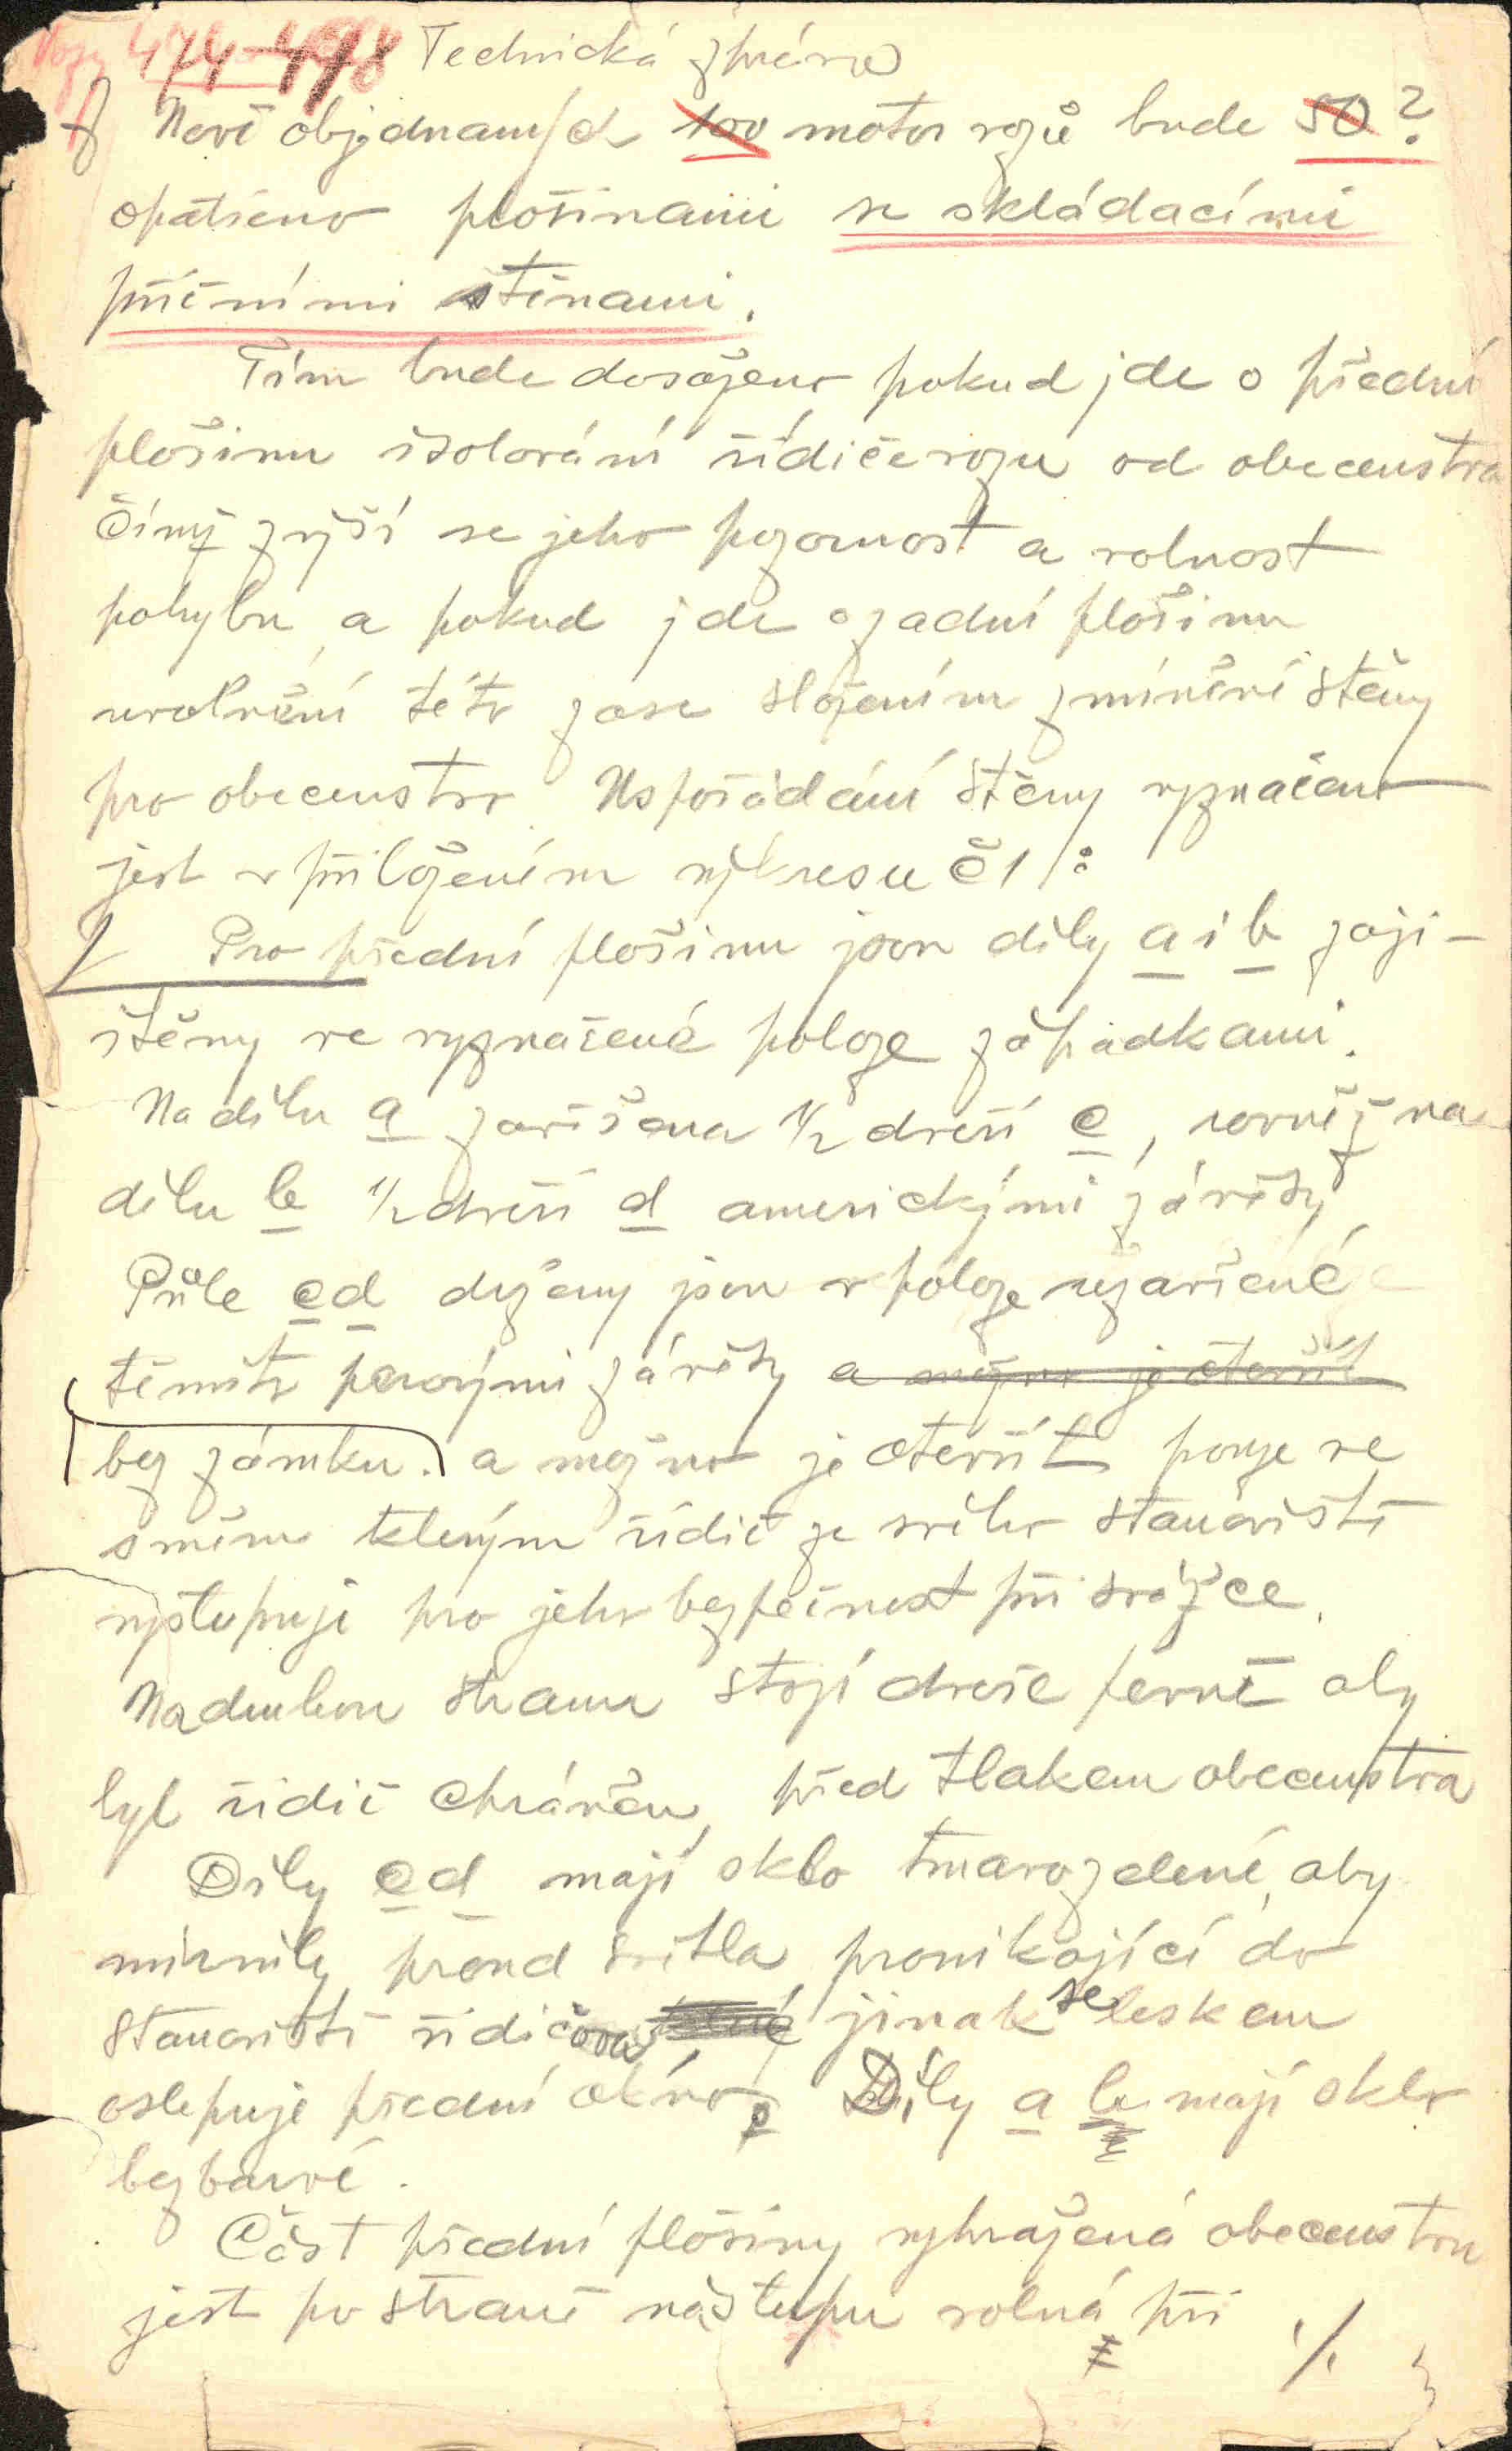 Vozy 474-478 Technická zpráva
Nově objednaných 100 motor vozů bude 50?
opatřeno plošinami se skládacími
příčními stěnami.
Tím bude dosaženo pokud jde o přední
plošinu isolování řidiče vozu od obecenstva
čímž zvýší se jeho pozornost a volnost
pohybu, a pokud jde o zadní plošinu
uvolnění této zase složením zmíněné stěny
pro obecenstvo. Uspořádání stěny vyznačeno
jest v přiloženém výkresu č 1:
Pro přední plošinu jsou díly a i b zaji-
štěny ve vyznačené poloze západkami.
Na dílu a zavěšena 1/2 dveří c, rovněž na
dílu b 1/2 dveří d americkými závěsy
Půle cd drženy jsou v poloze uzavřené
těmito pérovými závěsy a možno je otevřít
bez zámku. a možno je otevřít pouze ve
směru kterým řidič ze svého stanoviště
vystupuje pro jeho bezpečnost při srážce.
Na druhou stranu stojí dveře pevně aby
byl řidič chráněn, před tlakem obecenstva
Díly cd mají sklo tmavozelené, aby
mírnily proud světla pronikající do
stanoviště řidičova jinak se leskem
oslepuje přední okno. Díly a b mají sklo
bezbarvé.
Část přední plošiny vyhražená obecenstvu
jest po straně nástupu volná při ./.